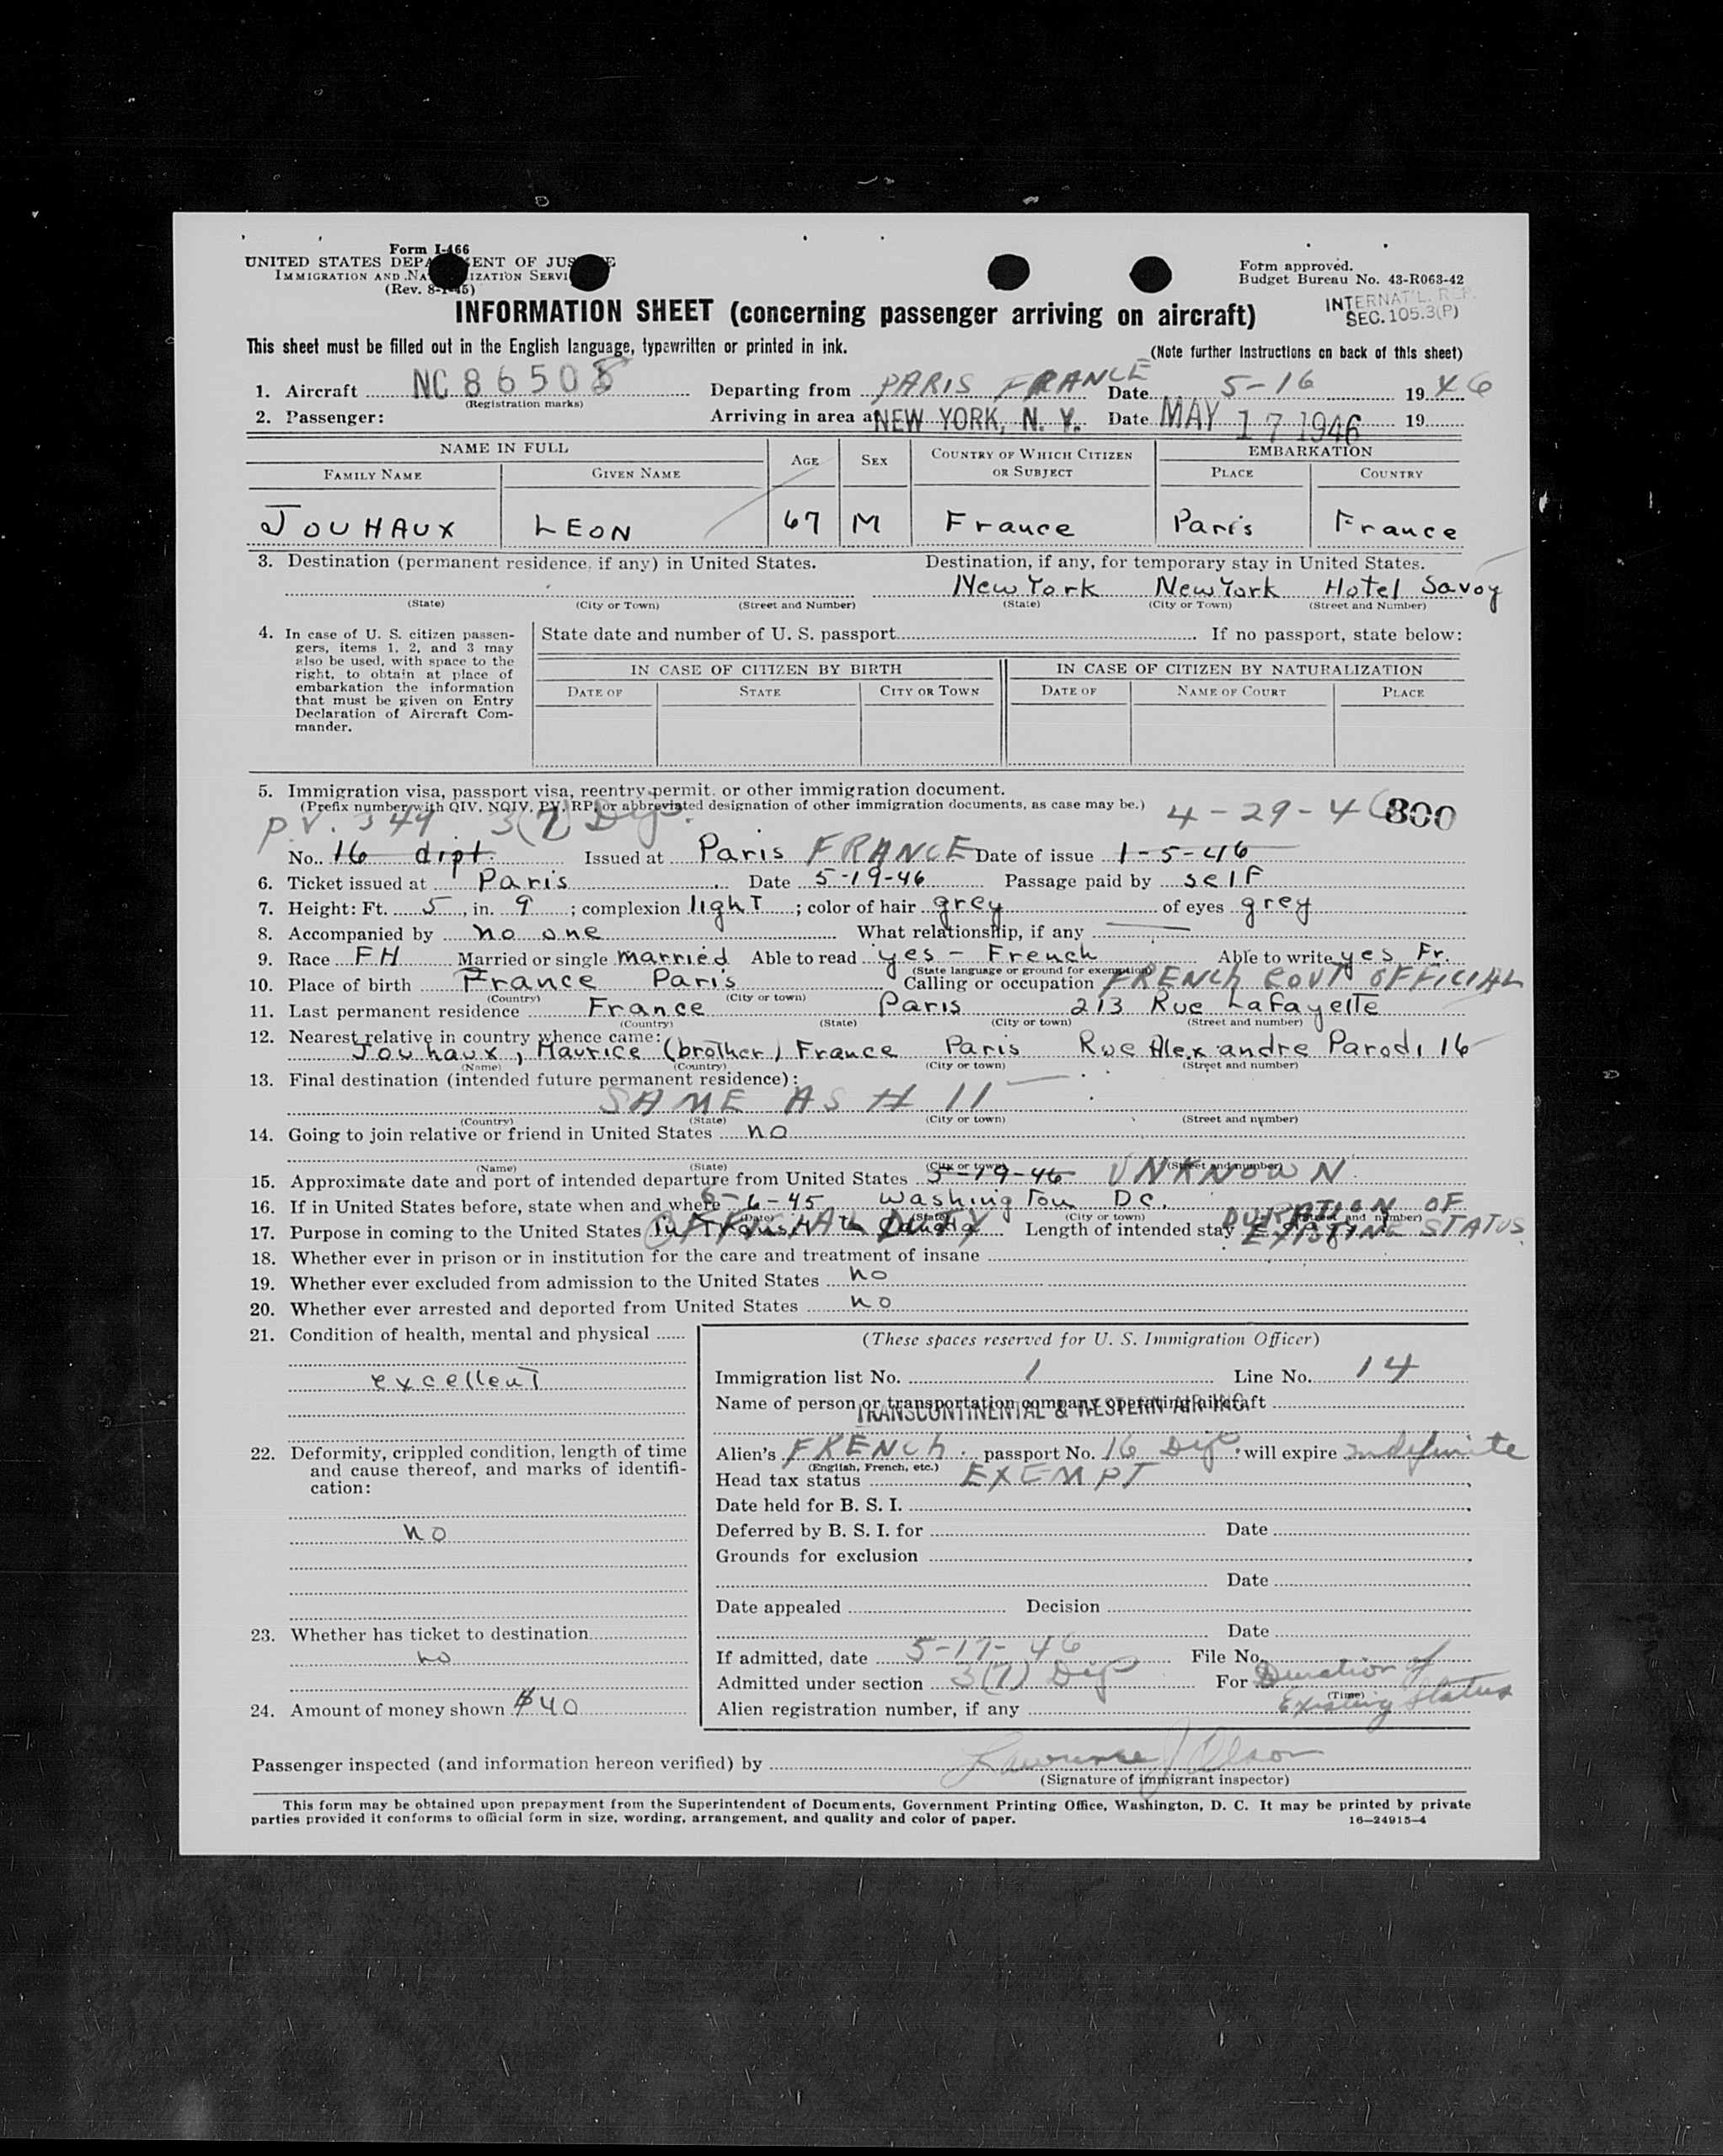 Form I-466
UNITED STATES DEPARTMENT OF JUSTICE
IMMIGRATION AND NATURALIZATION SERVICE
(Rev. 8-1-45)
Form approved.
Budget Bureau No. 43-R063-42
INTERNAT'L. REP.
SEC. 105.3(P)
INFORMATION SHEET (concerning passenger arriving on aircraft)
This sheet must be filled out in the English language, typewritten or printed in ink.
(Note further instructions on back of this sheet)
1. Aircraft NC 86508 Departing from PARIS FRANCE Date 5-16 1946
(Registration marks)
2. Passenger: Arriving in area at NEW YORK, N. Y. Date MAY 17 1946 19
NAME IN FULL AGE SEX COUNTRY OF WHICH CITIZEN OR SUBJECT EMBARKATION
FAMILY NAME GIVEN NAME PLACE COUNTRY
JOUHAUX LEON 67 M France Paris France
3. Destination (permanent residence, if any) in United States. Destination, if any, for temporary stay in United States.
New York New York Hotel Savoy
(State) (City or Town) (Street and Number) (State) (City or Town) (Street and Number)
4. In case of U. S. citizen passengers, items 1, 2, and 3 may also be used, with space to the right, to obtain at place of embarkation the information that must be given on Entry Declaration of Aircraft Commander.
State date and number of U. S. passport If no passport, state below:
IN CASE OF CITIZEN BY BIRTH IN CASE OF CITIZEN BY NATURALIZATION
DATE OF STATE CITY OR TOWN DATE OF NAME OF COURT PLACE
5. Immigration visa, passport visa, reentry permit, or other immigration document.
(Prefix number with QIV, NQIV, PV, RP, or abbreviated designation of other immigration documents, as case may be.)
P.V. 344 3(7) Dip. 4-29-46 800
No. 16 dipt. Issued at Paris FRANCE Date of issue 1-5-46
6. Ticket issued at Paris Date 5-19-46 Passage paid by self
7. Height: Ft. 5, in. 9; complexion light; color of hair grey of eyes grey
8. Accompanied by no one What relationship, if any
9. Race FH Married or single married Able to read yes - French Able to write yes Fr.
(State language or ground for exemption)
10. Place of birth France Paris Calling or occupation FRENCH GOVT OFFICIAL
(Country) (City or town)
11. Last permanent residence France Paris 213 Rue Lafayette
(Country) (State) (City or town) (Street and number)
12. Nearest relative in country whence came:
Jouhaux, Maurice (brother) France Paris Rue Alexandre Parodi 16
(Name) (Country) (City or town) (Street and number)
13. Final destination (intended future permanent residence):
SAME AS # 11
(Country) (State) (City or town) (Street and number)
14. Going to join relative or friend in United States no
(Name) (State) (City or town) (Street and number)
15. Approximate date and port of intended departure from United States 5-19-46 UNKNOWN
16. If in United States before, state when and where 6-6-45 Washington DC.
(Date) (State) (City or town) (Street and number)
17. Purpose in coming to the United States OFFICIAL DUTY Length of intended stay DURATION OF EXISTING STATUS
18. Whether ever in prison or in institution for the care and treatment of insane
19. Whether ever excluded from admission to the United States no
20. Whether ever arrested and deported from United States no
21. Condition of health, mental and physical
excellent
22. Deformity, crippled condition, length of time and cause thereof, and marks of identification:
no
23. Whether has ticket to destination
no
24. Amount of money shown $40
(These spaces reserved for U. S. Immigration Officer)
Immigration list No. 1 Line No. 14
Name of person or transportation company operating aircraft
TRANSCONTINENTAL & WESTERN AIR INC.
Alien's FRENCH passport No. 16 Dip. will expire indefinite
(English, French, etc.)
Head tax status EXEMPT
Date held for B. S. I.
Deferred by B. S. I. for Date
Grounds for exclusion
Date
Date appealed Decision
Date
If admitted, date 5-17-46 File No.
Admitted under section 3(7) Dip For Duration of Existing Status
(Time)
Alien registration number, if any
Passenger inspected (and information hereon verified) by Lawrence J Olson
(Signature of immigrant inspector)
This form may be obtained upon prepayment from the Superintendent of Documents, Government Printing Office, Washington, D. C. It may be printed by private
parties provided it conforms to official form in size, wording, arrangement, and quality and color of paper.
16—24915-4